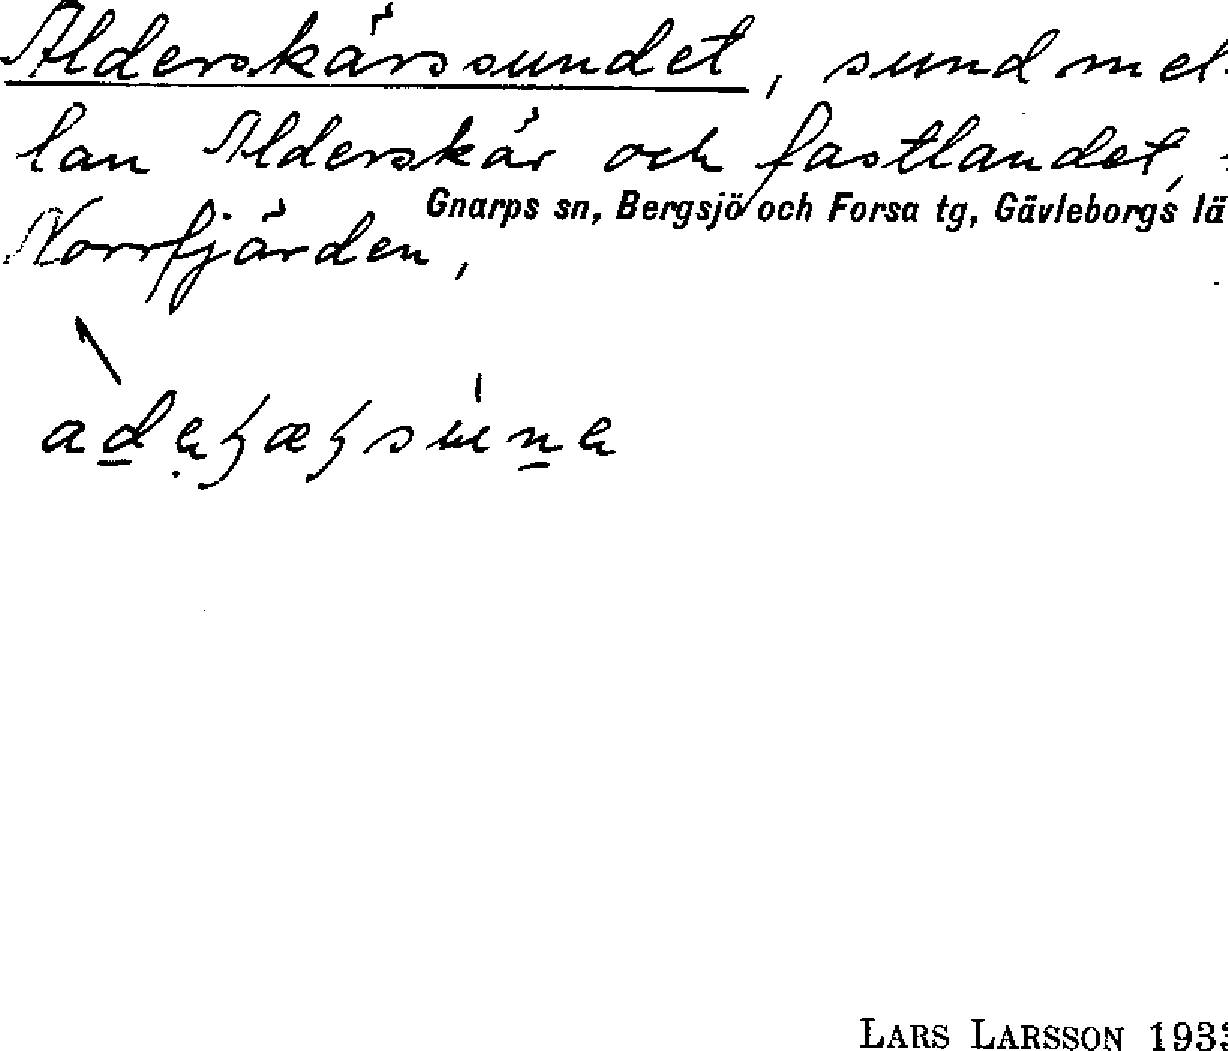 Alderskärssundet, sund mel-
lan Alderskär och fastlandet,
Gnarps sn, Bergsjö och Forsa tg, Gävleborgs lä
Norrfjärden,
LARS LARSSON 193